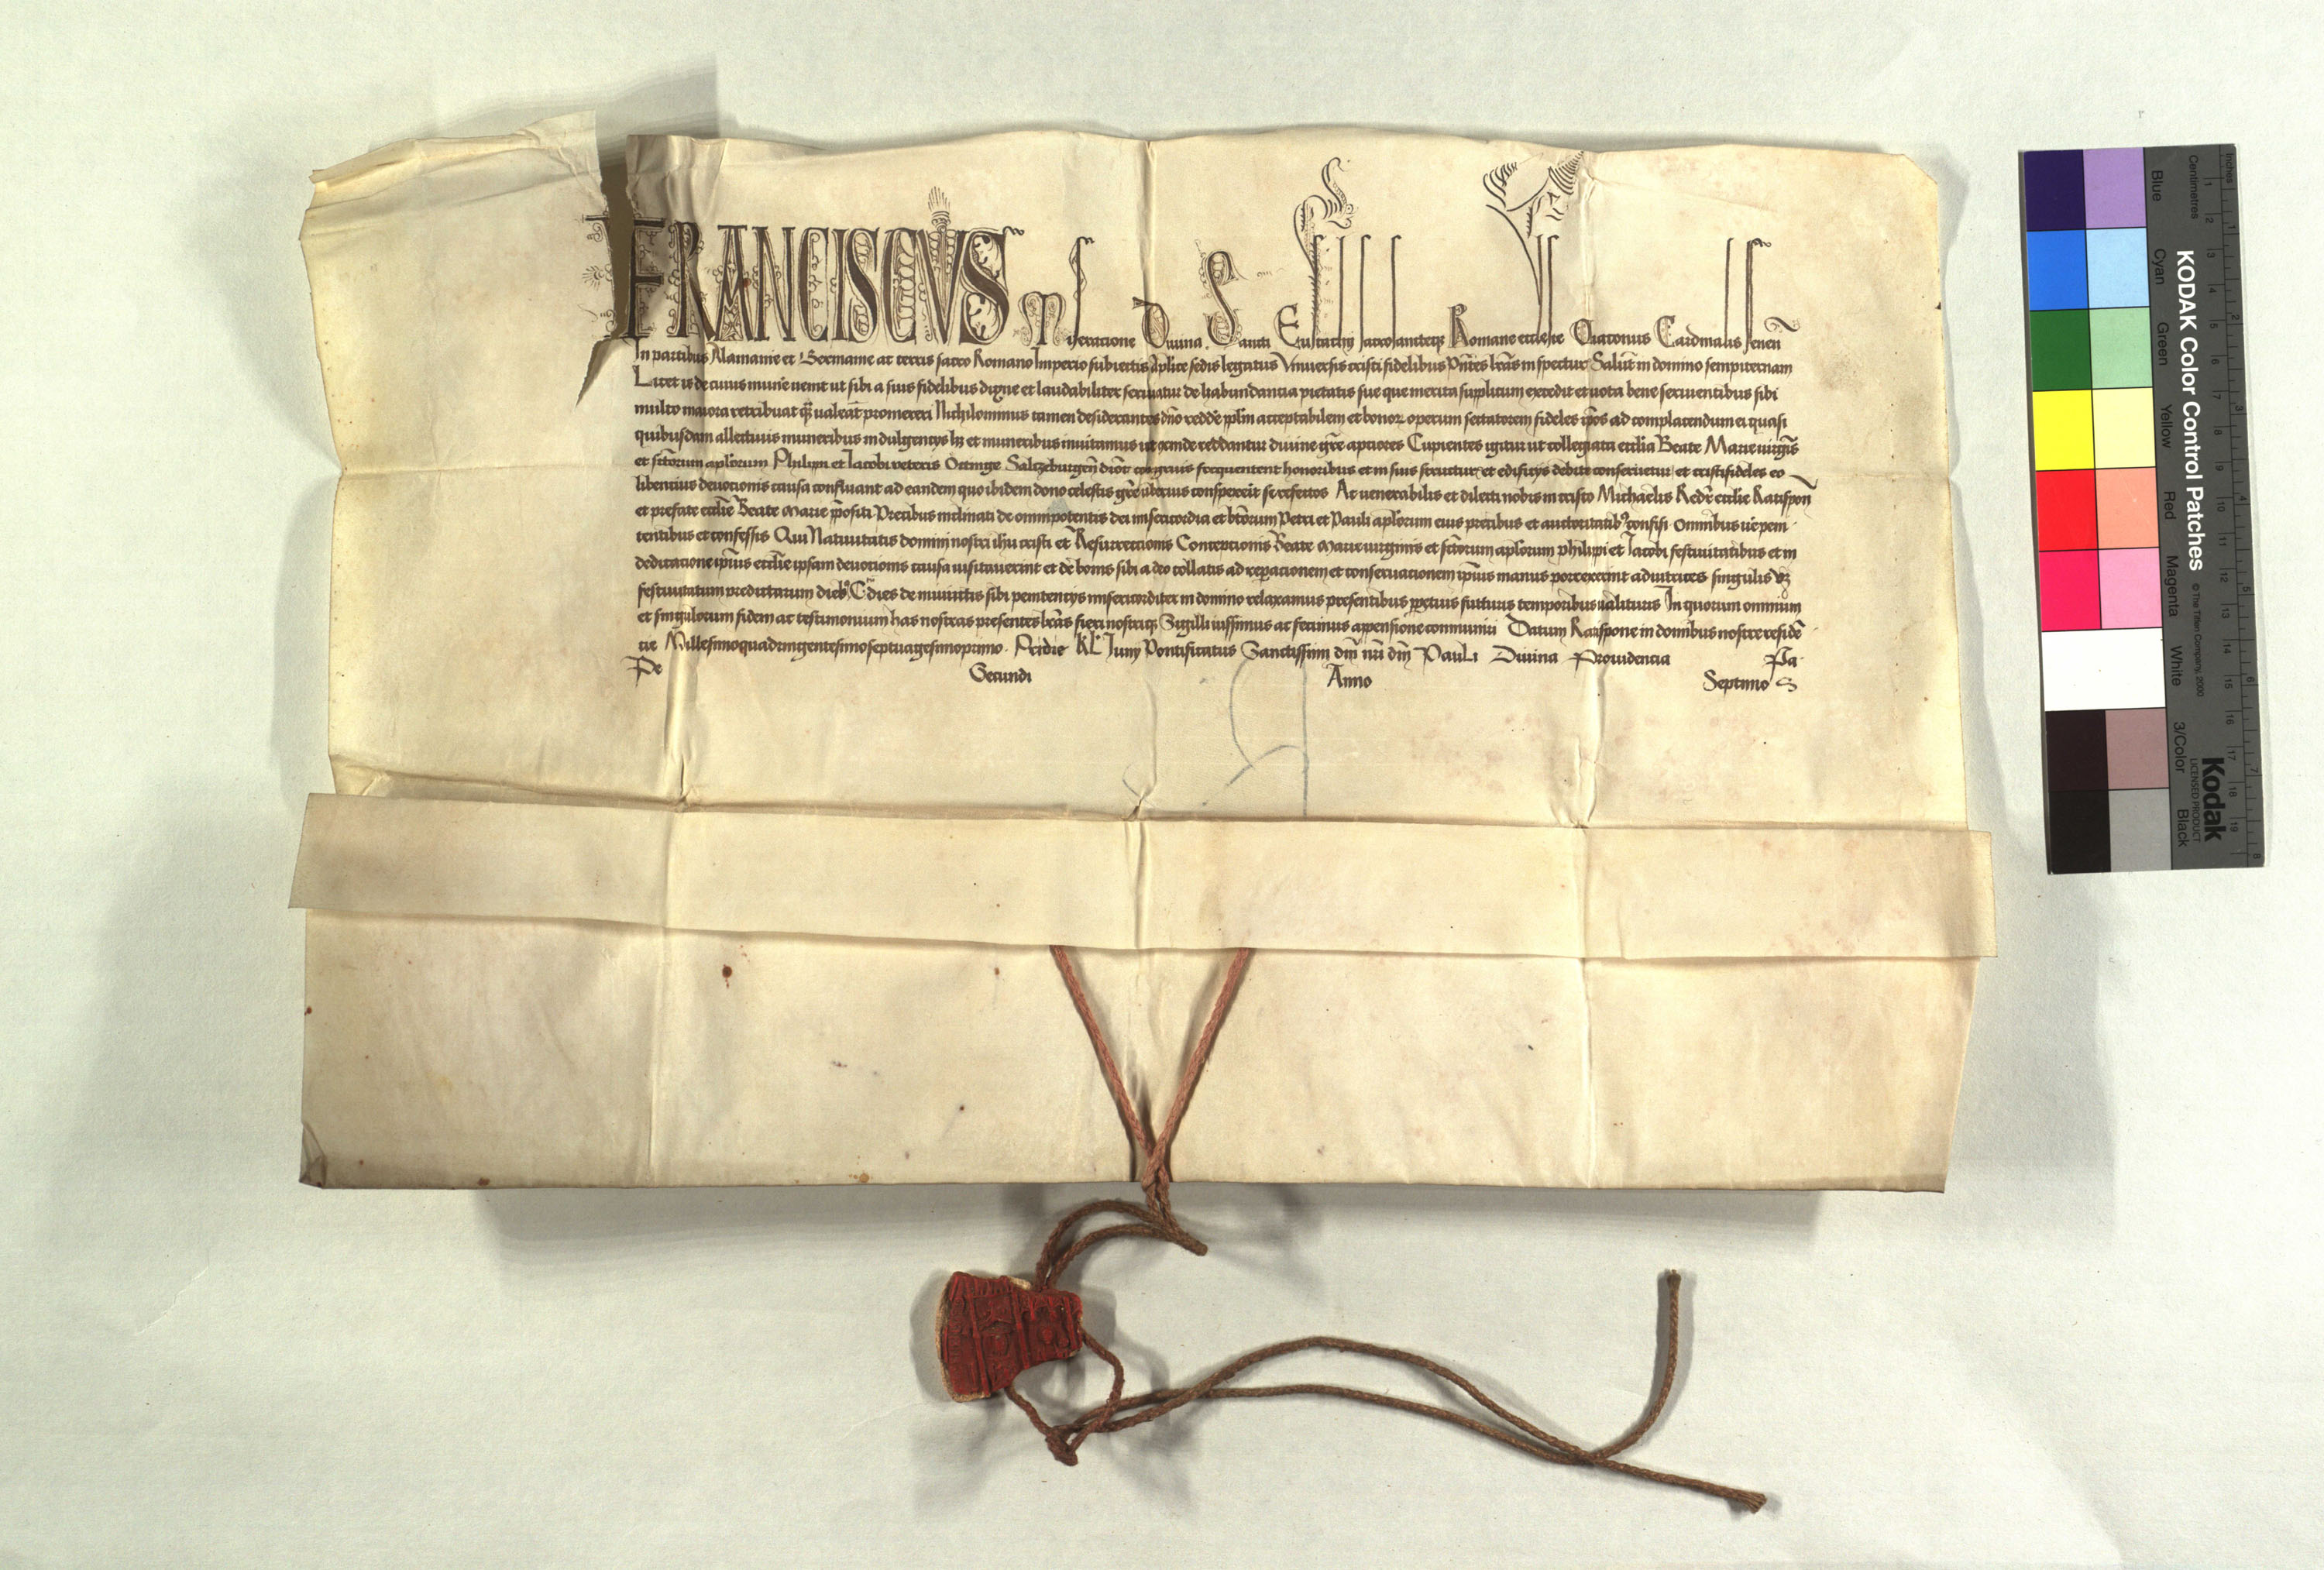 FRANCISCVS Miseratione Diuina Sancti Eustachij sacrosancteq; Romane ecclesie Diaconus Cardinalis Senen̄
In partibus Alamanie et Germanie ac terris sacro Romano Imperio subiectis aplice sedis legatus Vniuersis cristi fidelibus Pn̄tes lr̄as inspectur̄ Salut̄ in domino sempiternam
Licet is de cuius mun̄e uenit ut sibi a suis fidelibus digne et laudabiliter seruiatur de habundantia pietatis sue que merita supplitum excedit et uota bene seruientibus sibi
multo maiora retribuat q̄ ualeat promereri Nichilominus tamen desiderantes dn̄o redde pplm acceptabilem et bonor̄ operum sectatorem fideles ip̄os ad complacendum ei quasi
quibusdam allectiuis muneribus indulgencijs lz et muneribus inuitamus ut exinde reddantur diuine gr̄e aptiores Cupientes igitur ut collegiata eccl̄ia Beate Marie uirgīs
et sc̄torum apl̄orum Philippi et Iacobi ueteris Otinge Saltzeburgen̄ dioc̄ congruis frequentent honoribus et in suis structur̄ et edificijs debite conseruetur et cristifideles eo
libentius deuotionis causa confluant ad eandem quo ibidem dono celestis gr̄e uberius conspexerit se refectos Ac uenerabilis et dilecti nobis in cristo Michaelis Redr̄ eccl̄ie Ratispon̄
et prefate eccl̄ie Beate Marie ppositi Precibus inclinati de omnipotentis dei misericordia et bt̄orum Petri et Pauli apl̄orum eius precibus et auctoritatibꝰ confisi Omnibus ue peni
tentibus et confessis Qui Natiuitatis domini nostri ihu cristi et Resurrectionis Conceptionis Beate Marie uirginis et sc̄torum apl̄orum philippi et Iacobi festiuitatibus et in
dedicatione ip̄ius eccl̄ie ipsam deuotionis causa uisitauerint et de bonis sibi a deo collatis ad reparationem et conseruacionem ip̄ius manus porrexerint adiutrices singulis uz
festiuitatum predictarum diebꝰ C dies de iniunctis sibi penitencijs misericorditer in domino relaxamus presentibus ppetuis futuris temporibus ualituris In quorum omnium
et singulorum fidem ac testimonium has nostras presentes lr̄as fieri nostriq; Sigilli iussimus ac fecimus appensione communiri Datum Ratispone in domibus nostre residē
tie Millesimoquadringentesimoseptuagesimoprimo. Pridie Kl̄ Iunij Pontificatus Sanctissimi dn̄i nr̄i dn̄i Pauli Diuina Prouidencia Pa
Pe Secundi Anno Septimo
KODAK Color Control Patches © The Tiffen Company, 2000
Kodak
LICENSED PRODUCT
Blue Cyan Green Yellow Red Magenta White 3/Color Black
Inches 1 2 3 4 5 6 7 8
Centimetres 1 2 3 4 5 6 7 8 9 10 11 12 13 14 15 16 17 18 19